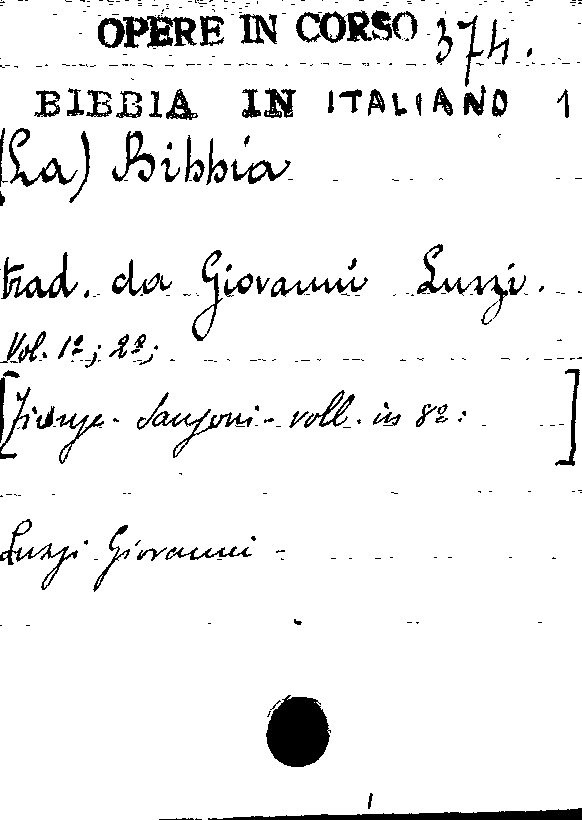 OPERE IN CORSO 374.
BIBBIA IN ITALIANO 1
(La) Bibbia
trad. da Giovanni Luzzi.
Vol. 1º; 2º;
[Firenze - Sansoni - voll. in 8º: ]
Luzzi Giovanni -